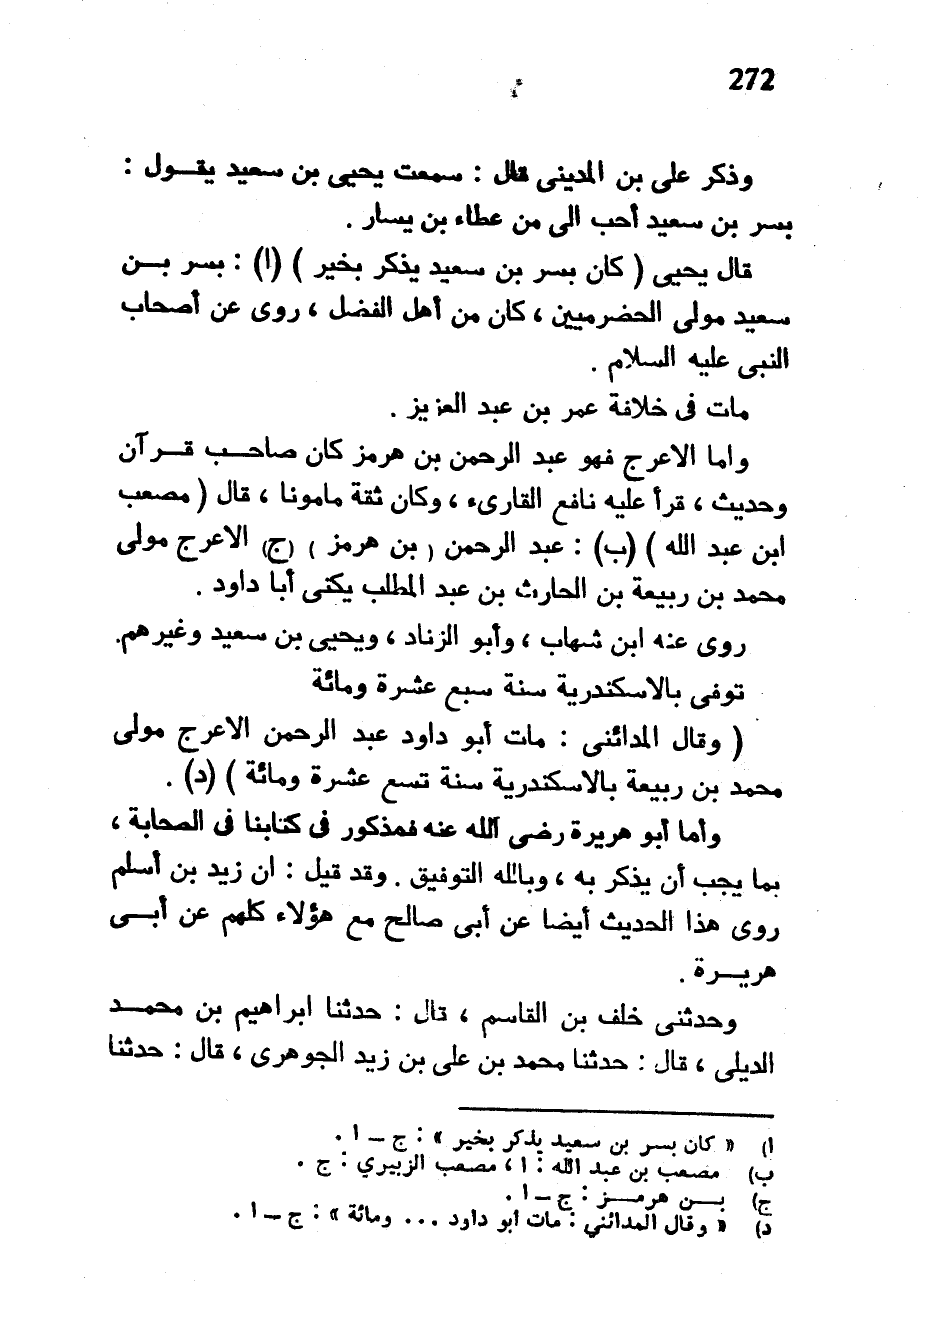 272
وذكر على بن المدينى قال : سمعت يحيى بن سعيد يقــول :
بسر بن سعيد أحب الى من عطاء بن يسار .
قال يحيى ( كان بسر بن سعيد يذكر بخير ) (ا) : بسر بــن
سعيد مولى الحضرميين ، كان من أهل الفضل ، روى عن أصحاب
النبى عليه السلام .
مات فى خلافة عمر بن عبد العزيز .
واما الاعرج فهو عبد الرحمن بن هرمز كان صاحــب قــرآن
وحديث ، قرأ عليه نافع القارىء ، وكان ثقة مامونا ، قال ( مصعب
ابن عبد الله ) (ب) : عبد الرحمن ( بن هرمز ) (ج) الاعرج مولى
محمد بن ربيعة بن الحارث بن عبد المطلب يكنى أبا داود .
روى عنه ابن شهاب ، وأبو الزناد ، ويحيى بن سعيد وغيرهم.
توفى بالاسكندرية سنة سبع عشرة ومائة
( وقال المدائنى : مات أبو داود عبد الرحمن الاعرج مولى
محمد بن ربيعة بالاسكندرية سنة تسع عشرة ومائة ) (د) .
وأما أبو هريرة رضى الله عنه فمذكور فى كتابنا فى الصحابة ،
بما يجب أن يذكر به ، وبالله التوفيق . وقد قيل : ان زيد بن أسلم
روى هذا الحديث أيضا عن أبى صالح مع هؤلاء كلهم عن أبــى
هريــرة .
وحدثنى خلف بن القاسم ، قال : حدثنا ابراهيم بن محمــد
الديلى ، قال : حدثنا محمد بن على بن زيد الجوهرى ، قال : حدثنا
ا) « كان بسر بن سعيد يذكر بخير » : ج ــ ا .
ب) مصعب بن عبد الله : ا ، مصعب الزبيري : ج .
ج) بــن هرمــز : ج ــ ا .
د) « وقال المدائني : مات ابو داود ... ومائة » : ج ــ ا .